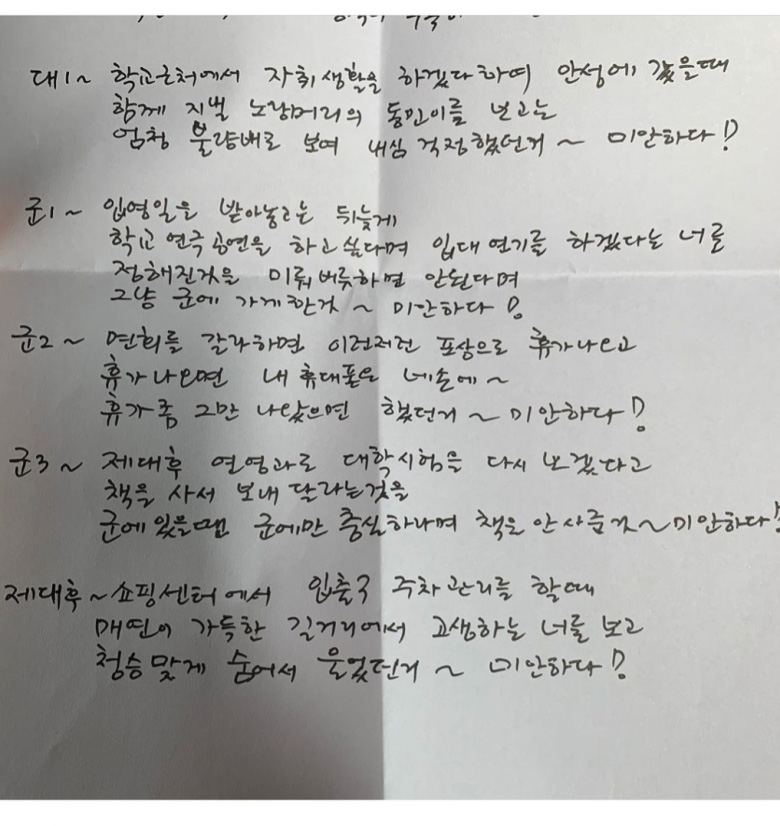 대1~ 학교근처에서 자취생활을 하겠다하여 안성에 갔을때
함께 지낼 노랑머리의 동민이를 보고는
엄청 불량배로 보여 내심 걱정했던거 ~ 미안하다!
군1~ 입영일을 받아놓고는 뒤늦게
학교 연극공연을 하고싶다며 입대 연기를 하겠다는 너를
정해진것을 미뤄 버릇하면 안된다며
그냥 군에 가게한것 ~ 미안하다!
군2~ 면회를 갈라하면 이런저런 포상으로 휴가나오고
휴가 나오면 내 휴대폰은 네손에~
휴가좀 그만 나왔으면 했던거 ~ 미안하다!
군3~ 제대후 연영과로 대학시험을 다시 보겠다고
책을 사서 보내 달라는것을
군에 있을땐 군에만 충실하라며 책을 안사준것~미안하다!
제대후~쇼핑센터에서 입출구 주차관리를 할때
매연이 가득한 길거리에서 고생하는 너를 보고
청승맞게 숨어서 울었던거 ~ 미안하다!